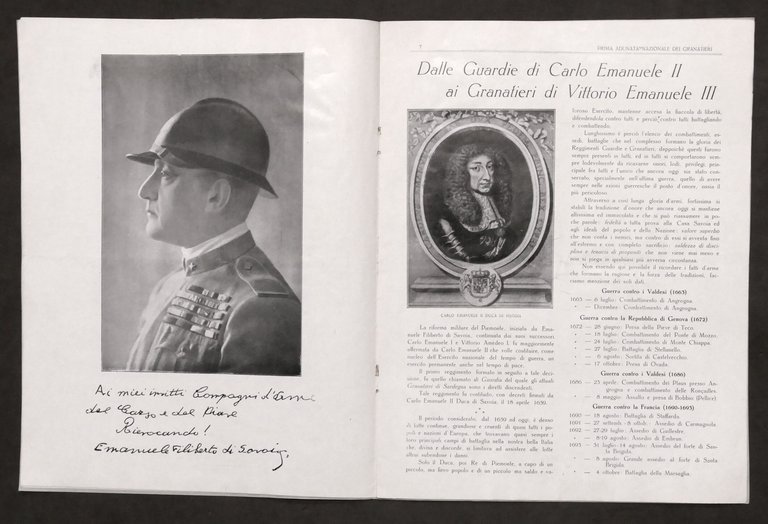 Ai miei invitti Compagni d'Armi
del Carso e del Piave
Rievocando!
Emanuele Filiberto di Savoia
7
PRIMA ADUNATA NAZIONALE DEI GRANATIERI
Dalle Guardie di Carlo Emanuele II
ai Granatieri di Vittorio Emanuele III
CARLO EMANUELE II DUCA DI SAVOIA
La riforma militare del Piemonte, iniziata da Ema-
nuele Filiberto di Savoia, continuata dai suoi successori
Carlo Emanuele I e Vittorio Amedeo I, fu maggiormente
affermata da Carlo Emanuele II che volle costituire, come
nucleo dell'Esercito nazionale del tempo di guerra, un
esercito permanente anche nel tempo di pace.
Il primo reggimento formato in seguito a tale deci-
sione, fu quello chiamato di Guardia del quale gli attuali
Granatieri di Sardegna sono i diretti discendenti.
Tale reggimento fu costituito, con decreti firmati da
Carlo Emanuele II Duca di Savoia, il 18 aprile 1659.
Il periodo considerato, dal 1659 ad oggi, è denso
di lotte continue, grandiose e cruenti di quasi tutti i po-
poli e nazioni d'Europa, che trovavano quasi sempre i
loro principali campi di battaglia nella nostra bella Italia
che, divisa e discorde, si limitava ad assistere alle lotte
altrui subendone i danni.
Solo il Duca, poi Re di Piemonte, a capo di un
piccolo, ma fiero popolo e di un piccolo ma saldo e va-
loroso Esercito, mantenne accesa la fiaccola di libertà,
difendendola contro tutti e perciò contro tutti battagliando
e combattendo.
Lunghissimo è perciò l'elenco dei combattimenti, as-
sedi, battaglie che nel complesso formano la gloria dei
Reggimenti Guardie e Granatieri, dappoichè questi furono
sempre presenti in tutti, ed in tutti si comportarono sem-
pre lodevolmente da ricavarne onori, lodi, privilegi, princi-
pale fra tutti e l'unico che ancora oggi sia stato con-
servato, specialmente nell'ultima guerra, quello di avere
sempre nelle azioni guerresche il posto d'onore, ossia il
più pericoloso.
Attraverso a così lunga gloria d'armi, fortissima si
stabilì la tradizione d'onore che ancora oggi si mantiene
altissima ed immacolata e che si può riassumere in po-
che parole: fedeltà a tutta prova alla Casa Savoia ed
agli ideali del popolo e della Nazione; valore superbo
che non conta i nemici, ma contro di essi si avventa fino
all'estremo e con completo sacrificio; saldezza di disci-
plina e tenacia di propositi che non viene mai meno e
non si piega in qualsiasi più avversa circostanza.
Non essendo qui possibile il ricordare i fatti d'arme
che formano la ragione e la forza delle tradizioni, fac-
ciamo menzione dei soli dati.
Guerra contro i Valdesi (1663)
1663 — 6 luglio: Combattimento di Angrogna.
» — Dicembre: Combattimento di Angrogna.
Guerra contro la Repubblica di Genova (1672)
1672 — 28 giugno: Presa della Pieve di Teco.
» — 18 luglio: Combattimento del Ponte di Mozzo.
» — 24 luglio: Combattimento di Monte Chiappa.
» — 27 luglio: Battaglia di Stellanello.
» — 6 agosto: Sortita di Castelvecchio.
» — 17 ottobre: Presa di Ovada.
Guerra contro i Valdesi (1686)
1686 — 23 aprile: Combattimento dei Plans presso An-
grogna e combattimento delle Ronçailles.
» — 8 maggio: Assalto e presa di Bobbio (Pellice).
Guerra contro la Francia (1690-1695)
1690 — 18 agosto: Battaglia di Staffarda.
1691 — 27 settemb. - 8 ottob.: Assedio di Carmagnola.
1692 — 27-29 luglio: Assedio di Guillestre.
» — 8-19 agosto: Assedio di Embrun.
1693 — 31 luglio - 14 agosto: Assedio del forte di San-
ta Brigida.
» — 8 agosto: Grande assedio al forte di Santa
Brigida.
» — 4 ottobre: Battaglia della Marsaglia.